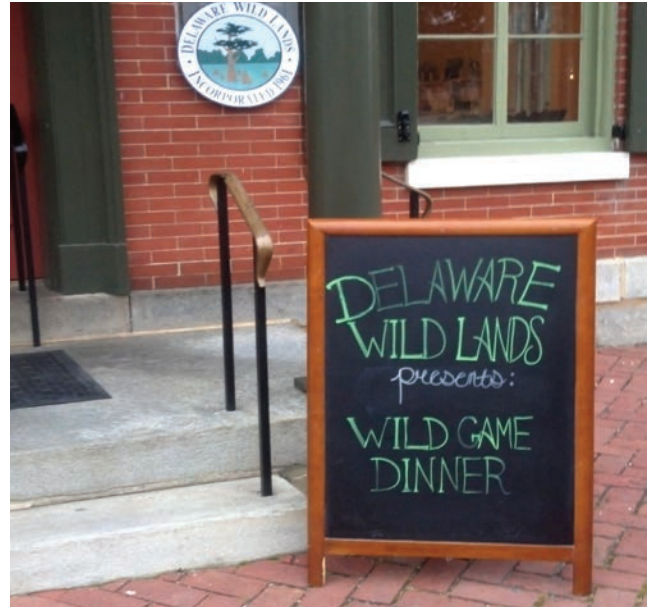 DELAWARE WILD LANDS
INCORPORATED 1961
DELAWARE
WILD LANDS
presents:
WILD GAME
DINNER